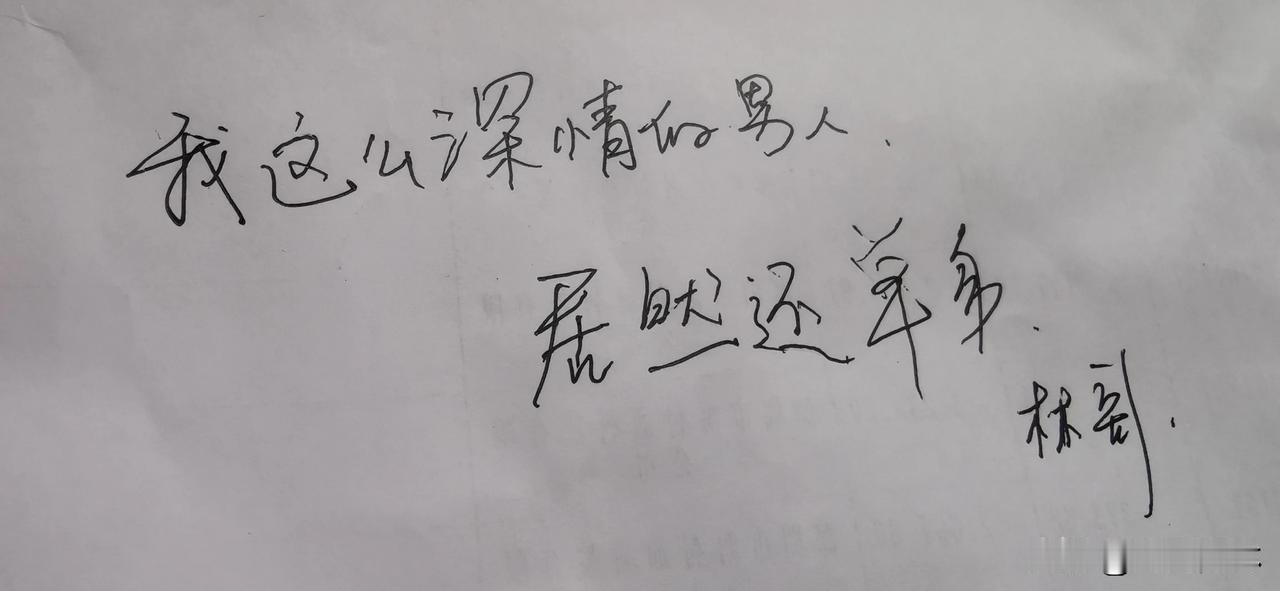 我这么深情的男人.
居然还单身.
林哥.